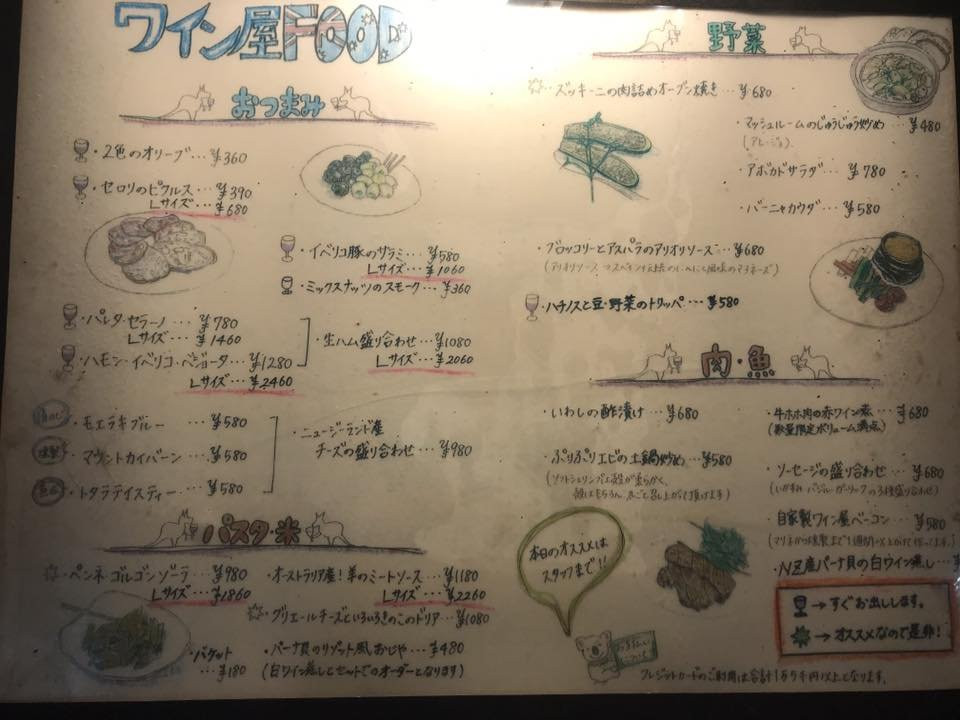 ワイン屋FOOD
おつまみ
・2色のオリーブ…¥360
・セロリのピクルス…¥390
Lサイズ…¥680
・イベリコ豚のサラミ…¥580
Lサイズ…¥1060
・ミックスナッツのスモーク…¥360
・パレタ・セラーノ…¥780
Lサイズ…¥1460
・ハモン・イベリコ・ベジョータ…¥1280
Lサイズ…¥2460
・生ハム盛り合わせ…¥1080
Lサイズ…¥2060
・モエラキブルー…¥580
・マウントカイバーン…¥580
・トタラテイスティー…¥580
・ニュージーランド産
チーズの盛り合わせ…¥980
パスタ・米
・ペンネ・ゴルゴンゾーラ…¥980
Lサイズ…¥1860
・オーストラリア産!羊のミートソース…¥1180
Lサイズ…¥2260
・グリエールチーズといろいろきのこのドリア…¥1080
・バゲット
…¥180
・パーナ貝のリゾット風おじや…¥480
(白ワイン蒸しとセットでのオーダーとなります)
野菜
・ズッキーニの肉詰めオーブン焼き…¥680
・マッシュルームのじゅうじゅう炒め…¥480
(アヒージョ)
・アボカドサラダ…¥780
・バーニャカウダ…¥580
・ブロッコリーとアスパラのアリオリソース…¥680
(アリオリソース→スペイン伝統のにんにく風味のマヨネーズ)
・ハチノスと豆・野菜のトリッパ…¥580
肉・魚
・いわしの酢漬け…¥680
・牛ホホ肉の赤ワイン煮…¥680
(数量限定ボリューム満点)
・ぷりぷりエビの土鍋炒め…¥580
(ソフトシュリンプは殻が柔らかく、
頭はもちろん、丸ごと召し上がって頂けます)
・ソーセージの盛り合わせ…¥680
(いかすみ・バジル・ガーリックの3種盛り合わせ)
・自家製ワイン屋ベーコン…¥580
(マリネから燻製まで1週間以上かけて作ってます。)
・NZ産パーナ貝の白ワイン蒸し…¥
本日のオススメは
スタッフまで!!
→すぐお出しします。
→オススメなので是非!
クレジットカードのご利用は合計1万5千円以上となります。